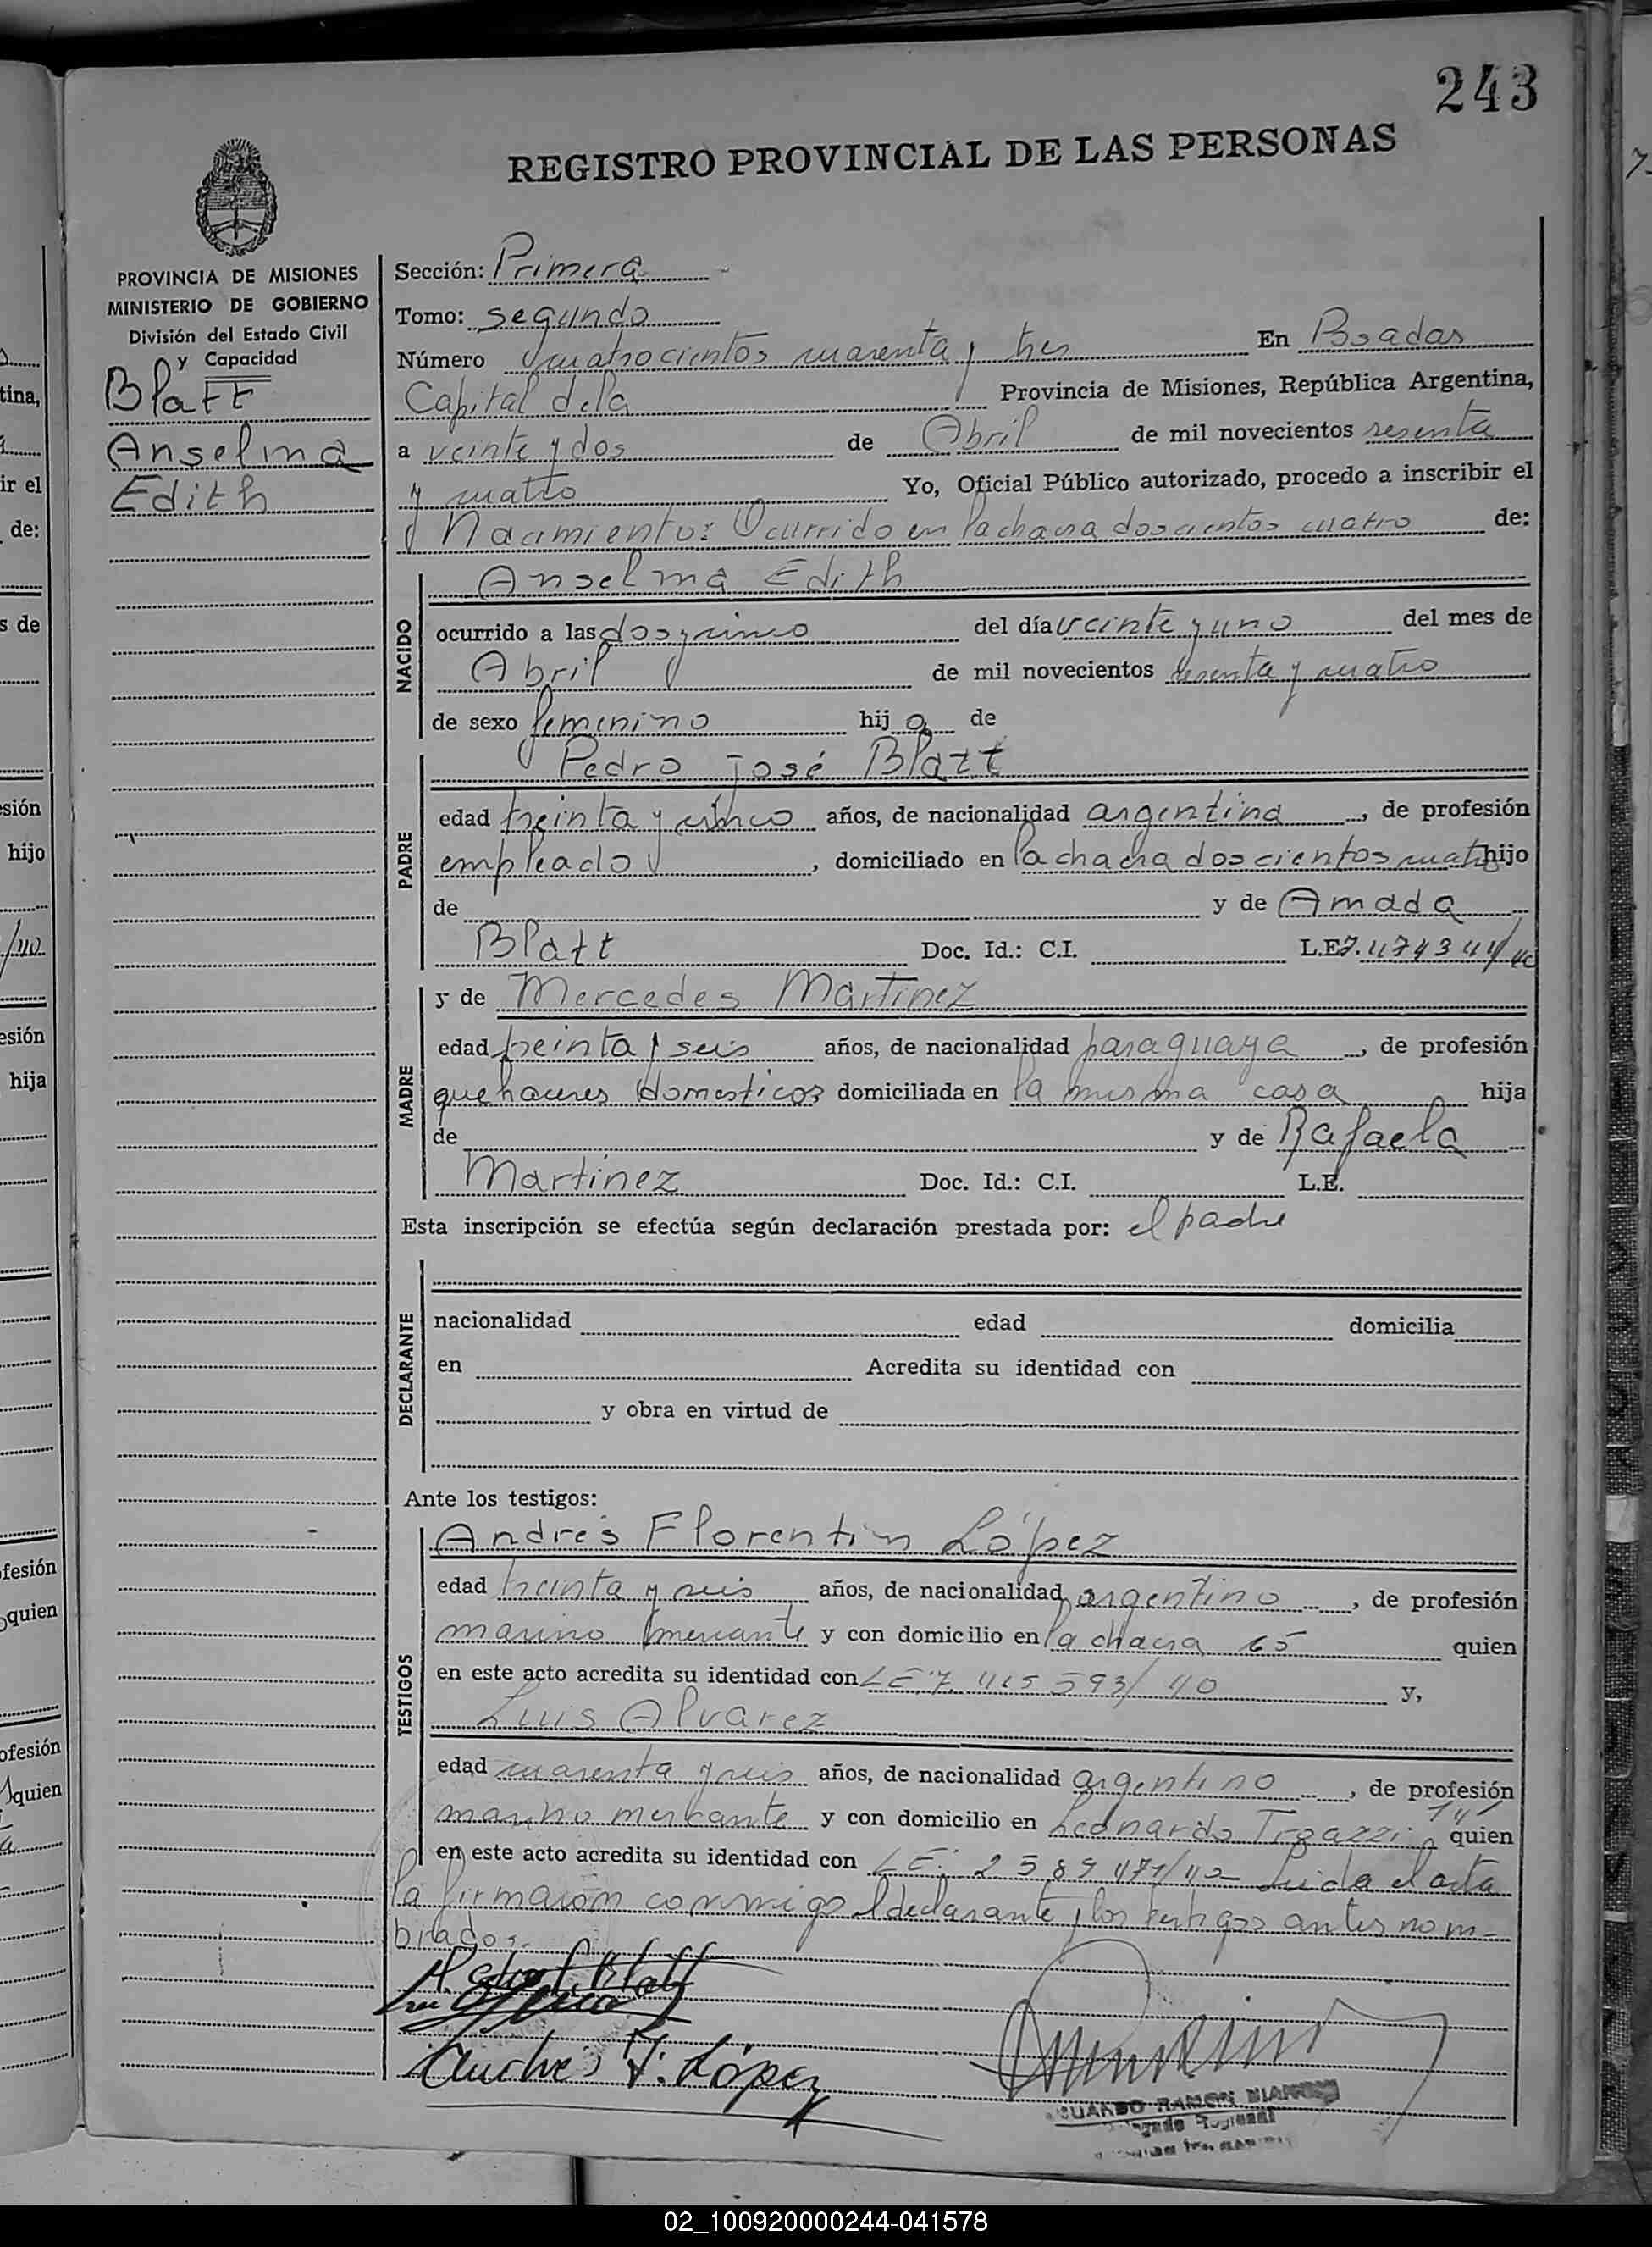 243
REGISTRO PROVINCIAL DE LAS PERSONAS
PROVINCIA DE MISIONES
MINISTERIO DE GOBIERNO
División del Estado Civil
y Capacidad
Blatt
Anselma
Edith
Sección: Primera
Tomo: segundo
Número cuatrocientos cuarenta y tres En Posadas
Capital dela Provincia de Misiones, República Argentina,
a veinte y dos de Abril de mil novecientos sesenta
y cuatro Yo, Oficial Público autorizado, procedo a inscribir el
Nacimiento: Ocurrido en la chacra doscientos cuatro de:
NACIDO
Anselma Edith
ocurrido a las dos y cinco del día veinte y uno del mes de
Abril de mil novecientos sesenta y cuatro
de sexo femenino hij a de
PADRE
Pedro José Blatt
edad treinta y cinco años, de nacionalidad argentina, de profesión
empleado, domiciliado en la chacra doscientos cuatro hijo
de y de Amada
Blatt Doc. Id.: C.I. L.E. 7.474344/40
MADRE
y de Mercedes Martinez
edad treinta y seis años, de nacionalidad paraguaya, de profesión
quehaceres domesticos domiciliada en la misma casa hija
de y de Rafaela
Martinez Doc. Id.: C.I. L.E.
Esta inscripción se efectúa según declaración prestada por: el padre
DECLARANTE
nacionalidad edad domicilia
en Acredita su identidad con
y obra en virtud de
Ante los testigos:
TESTIGOS
Andrés Florentin López
edad treinta y seis años, de nacionalidad argentino, de profesión
marino mercante y con domicilio en la chacra 65 quien
en este acto acredita su identidad con LE. 7. 465 593/40 y,
Luis Alvarez
edad cuarenta y seis años, de nacionalidad argentino, de profesión
marino mercante y con domicilio en Leonardo 141 quien
en este acto acredita su identidad con LE: 2 589 471/40 Leida el acta
la firmaron conmigo el declarante y los testigos antes nom-
brados.
Andres F. López
RAMON
02_100920000244-041578